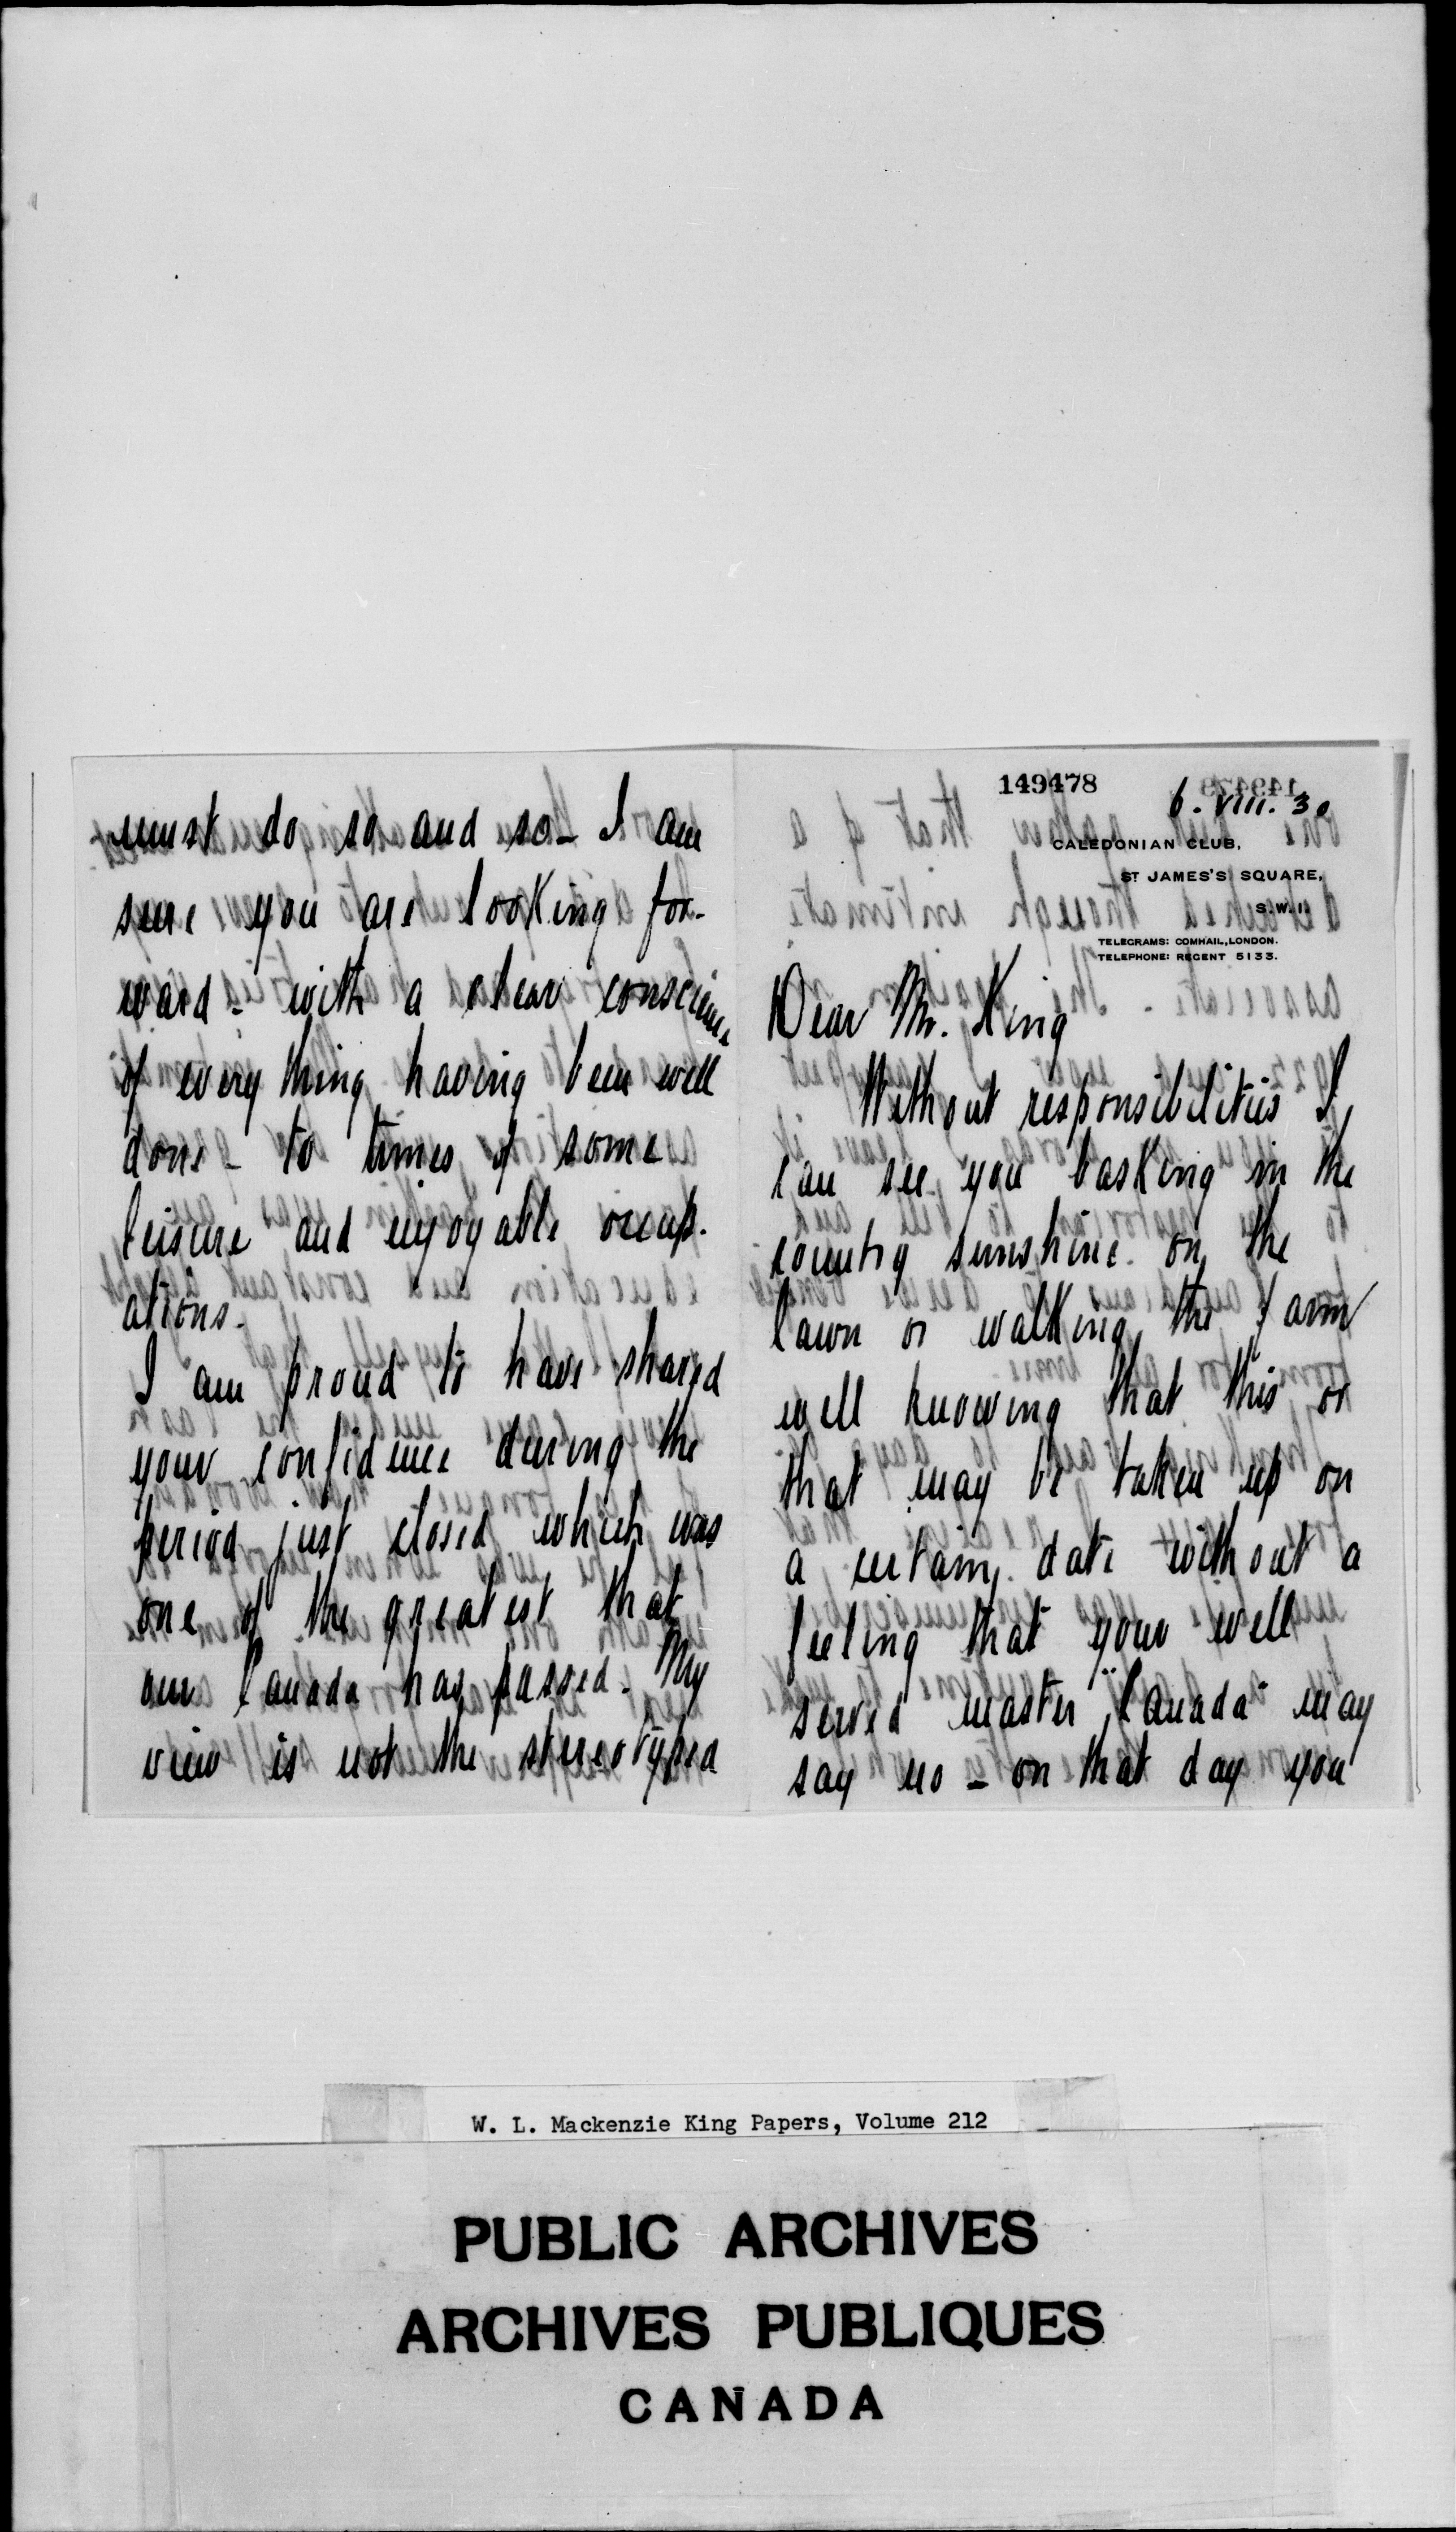 149478
6. VIII. 30
CALEDONIAN CLUB,
ST JAMES'S SQUARE,
S.W.1.
TELEGRAMS: COMHAIL, LONDON.
TELEPHONE: REGENT 5133.
Dear Mr. King
Without responsibilities I
can see you basking in the
country sunshine on the
lawn or walking the farm
well knowing that this or
that may be taken up on
a certain date without a
feeling that your well
served master "Canada" may
say no - on that day you
must do so and so - I am
sure you are looking for-
ward - with a clear conscience
of every thing having been well
done - to times of some
leisure and enjoyable occup-
ations.
I am proud to have shared
your confidence during the
period just closed which was
one of the greatest that
our Canada has passed. My
view is not the stereotyped
W. L. Mackenzie King Papers, Volume 212
PUBLIC ARCHIVES
ARCHIVES PUBLIQUES
CANADA